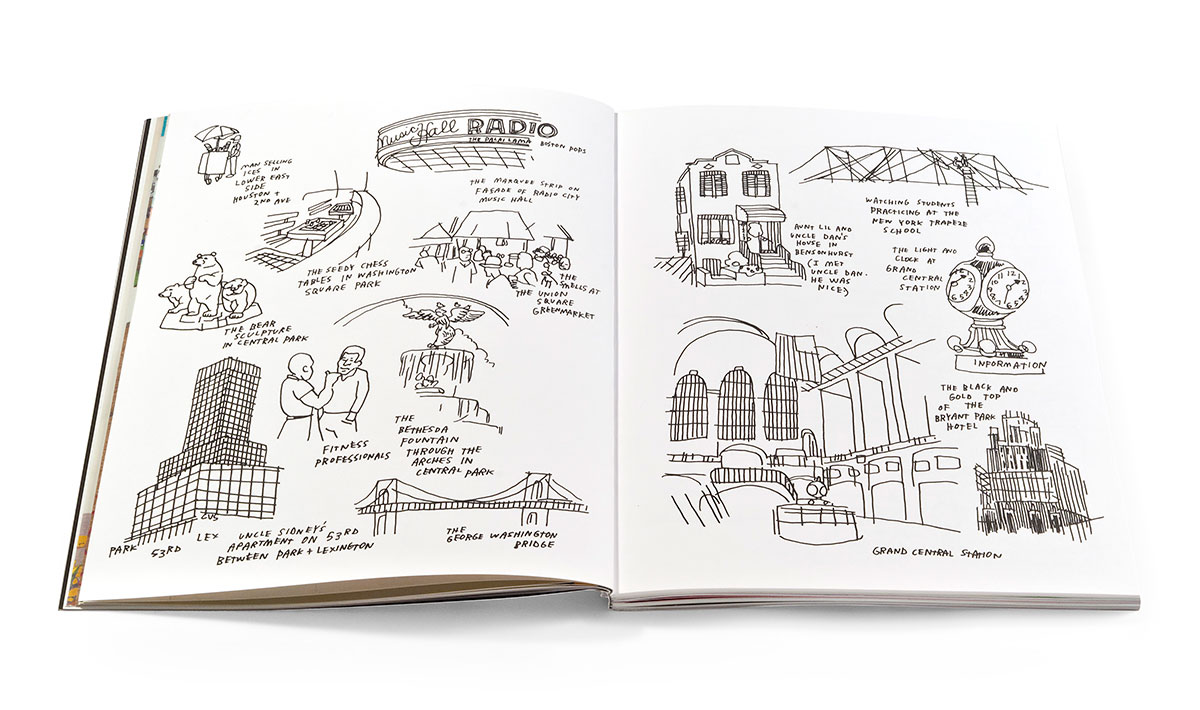 MAN SELLING
ICES IN
LOWER EAST
SIDE
HOUSTON +
2ND AVE
Music Hall RADIO
THE DALAI LAMA
BOSTON POPS
THE MARQUEE STRIP ON
FAÇADE OF RADIO CITY
MUSIC HALL
THE SEEDY CHESS
TABLES IN WASHINGTON
SQUARE PARK
THE
SMELLS AT
THE UNION
SQUARE
GREENMARKET
THE BEAR
SCULPTURE
IN CENTRAL PARK
FITNESS
PROFESSIONALS
THE
BETHESDA
FOUNTAIN
THROUGH THE
ARCHES IN
CENTRAL PARK
CVS
PARK 53RD LEX
UNCLE SIDNEY'S
APARTMENT ON 53RD
BETWEEN PARK + LEXINGTON
THE
GEORGE WASHINGTON
BRIDGE
AUNT LIL AND
UNCLE DAN'S
HOUSE IN
BENSONHURST
(I MET
UNCLE DAN.
HE WAS
NICE)
WATCHING STUDENTS
PRACTICING AT THE
NEW YORK TRAPEZE
SCHOOL
THE LIGHT AND
CLOCK AT
GRAND
CENTRAL
STATION
INFORMATION
THE BLACK AND
GOLD TOP
OF THE
BRYANT PARK
HOTEL
GRAND CENTRAL STATION